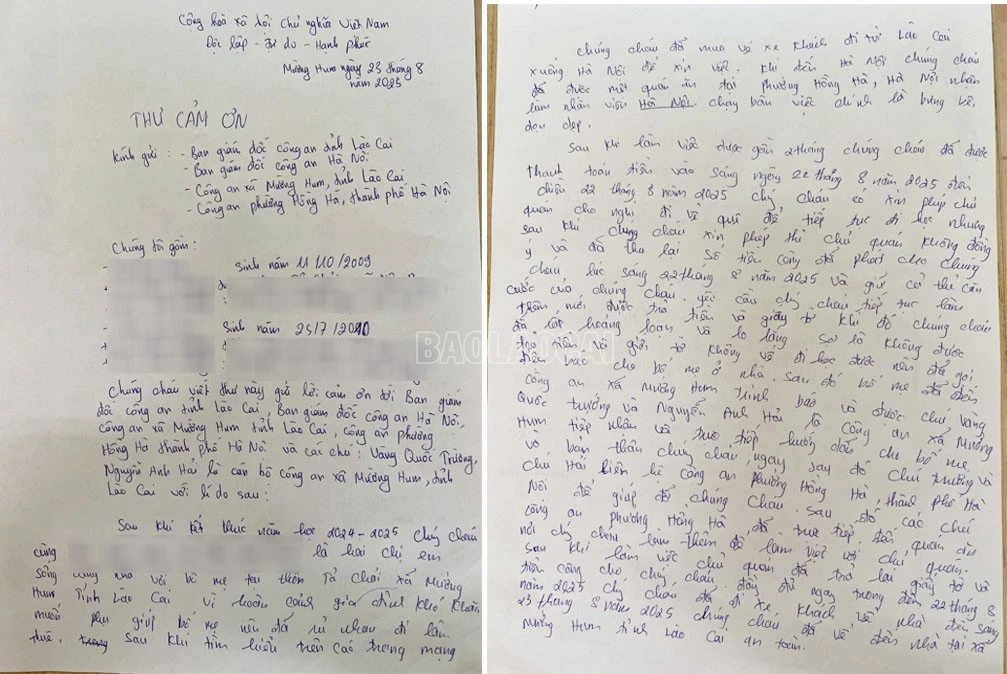 Cộng hoà xã hội chủ nghĩa Việt Nam
Độc lập - Tự do - Hạnh phúc
Mường Hum ngày 23 tháng 8
năm 2025
THƯ CẢM ƠN
Kính gửi : - Ban giám đốc công an tỉnh Lào Cai
- Ban giám đốc công an Hà Nội
- Công an xã Mường Hum, tỉnh Lào Cai
- Công an phường Hồng Hà, thành phố Hà Nội
Chúng tôi gồm :
Sinh năm 11/10/2009
Sinh năm 25/7/2010
BAOLAOCAI
Chúng cháu viết thư này gửi lời cảm ơn tới Ban giám
đốc công an tỉnh Lào Cai, Ban giám đốc công an Hà Nội,
công an xã Mường Hum tỉnh Lào Cai, công an phường
Hồng Hà thành phố Hà Nội và các chú : Vàng Quốc Trường,
Nguyễn Anh Hải là cán bộ công an xã Mường Hum, tỉnh
Lào Cai với lí do sau :
Sau khi kết thúc năm học 2024-2025 chúng cháu
cùng là hai chị em
sống cùng nhà với bố mẹ tại thôn Tả Chải xã Mường
Hum tỉnh Lào Cai vì hoàn cảnh gia đình khó khăn
muốn phụ giúp bố mẹ nên đã rủ nhau đi làm
thuê. Sau khi tìm hiểu trên các trang mạng
chúng cháu đã mua vé xe khách đi từ Lào Cai
xuống Hà Nội để xin việc. Khi đến Hà Nội chúng cháu
đã được một quán ăn tại phường Hồng Hà, Hà Nội nhận
làm nhân viên Hà Nội chạy bàn việc chính là bưng bê,
dọn dẹp.
Sau khi làm việc được gần 2 tháng chúng cháu đã được
thanh toán tiền vào sáng ngày 22 tháng 8 năm 2025 đến
chiều 22 tháng 8 năm 2025 chúng cháu có xin phép chủ
quán cho nghỉ đi về quê để tiếp tục đi học nhưng
sau khi chúng cháu xin phép thì chủ quán không đồng
ý và đã thu lại số tiền công đã phát cho chúng
cháu lúc sáng 22 tháng 8 năm 2025 và giữ cả thẻ căn
cước của chúng cháu. yêu cầu chúng cháu tiếp tục làm
thêm mới được trả tiền và giấy tờ khi đó chúng cháu
đã rất hoảng loạn và lo lắng sợ là không được
trả tiền và giấy tờ không về đi học được nên đã gọi
điện báo cho bố mẹ ở nhà. Sau đó bố mẹ đã đến
công an xã Mường Hum trình báo và được chú Vàng
Quốc Trường và Nguyễn Anh Hải là công an xã Mường
Hum tiếp nhận và trực tiếp hướng dẫn cho bố mẹ
và bản thân chúng cháu, ngay sau đó chú Trường và
chú Hải liên hệ công an phường Hồng Hà, thành phố Hà
Nội để giúp đỡ chúng cháu. Sau đó các chú
công an phường Hồng Hà đã trực tiếp đến quán ăn
nơi chúng cháu làm thêm để làm việc với chủ quán.
Sau khi làm việc chủ quán đã trả lại giấy tờ và
tiền công cho chúng cháu đầy đủ ngay trong đêm 22 tháng 8
năm 2025 chúng cháu đã đi xe khách về nhà đến sáng
23 tháng 8 năm 2025 chúng cháu đã về đến nhà tại xã
Mường Hum tỉnh Lào Cai an toàn.